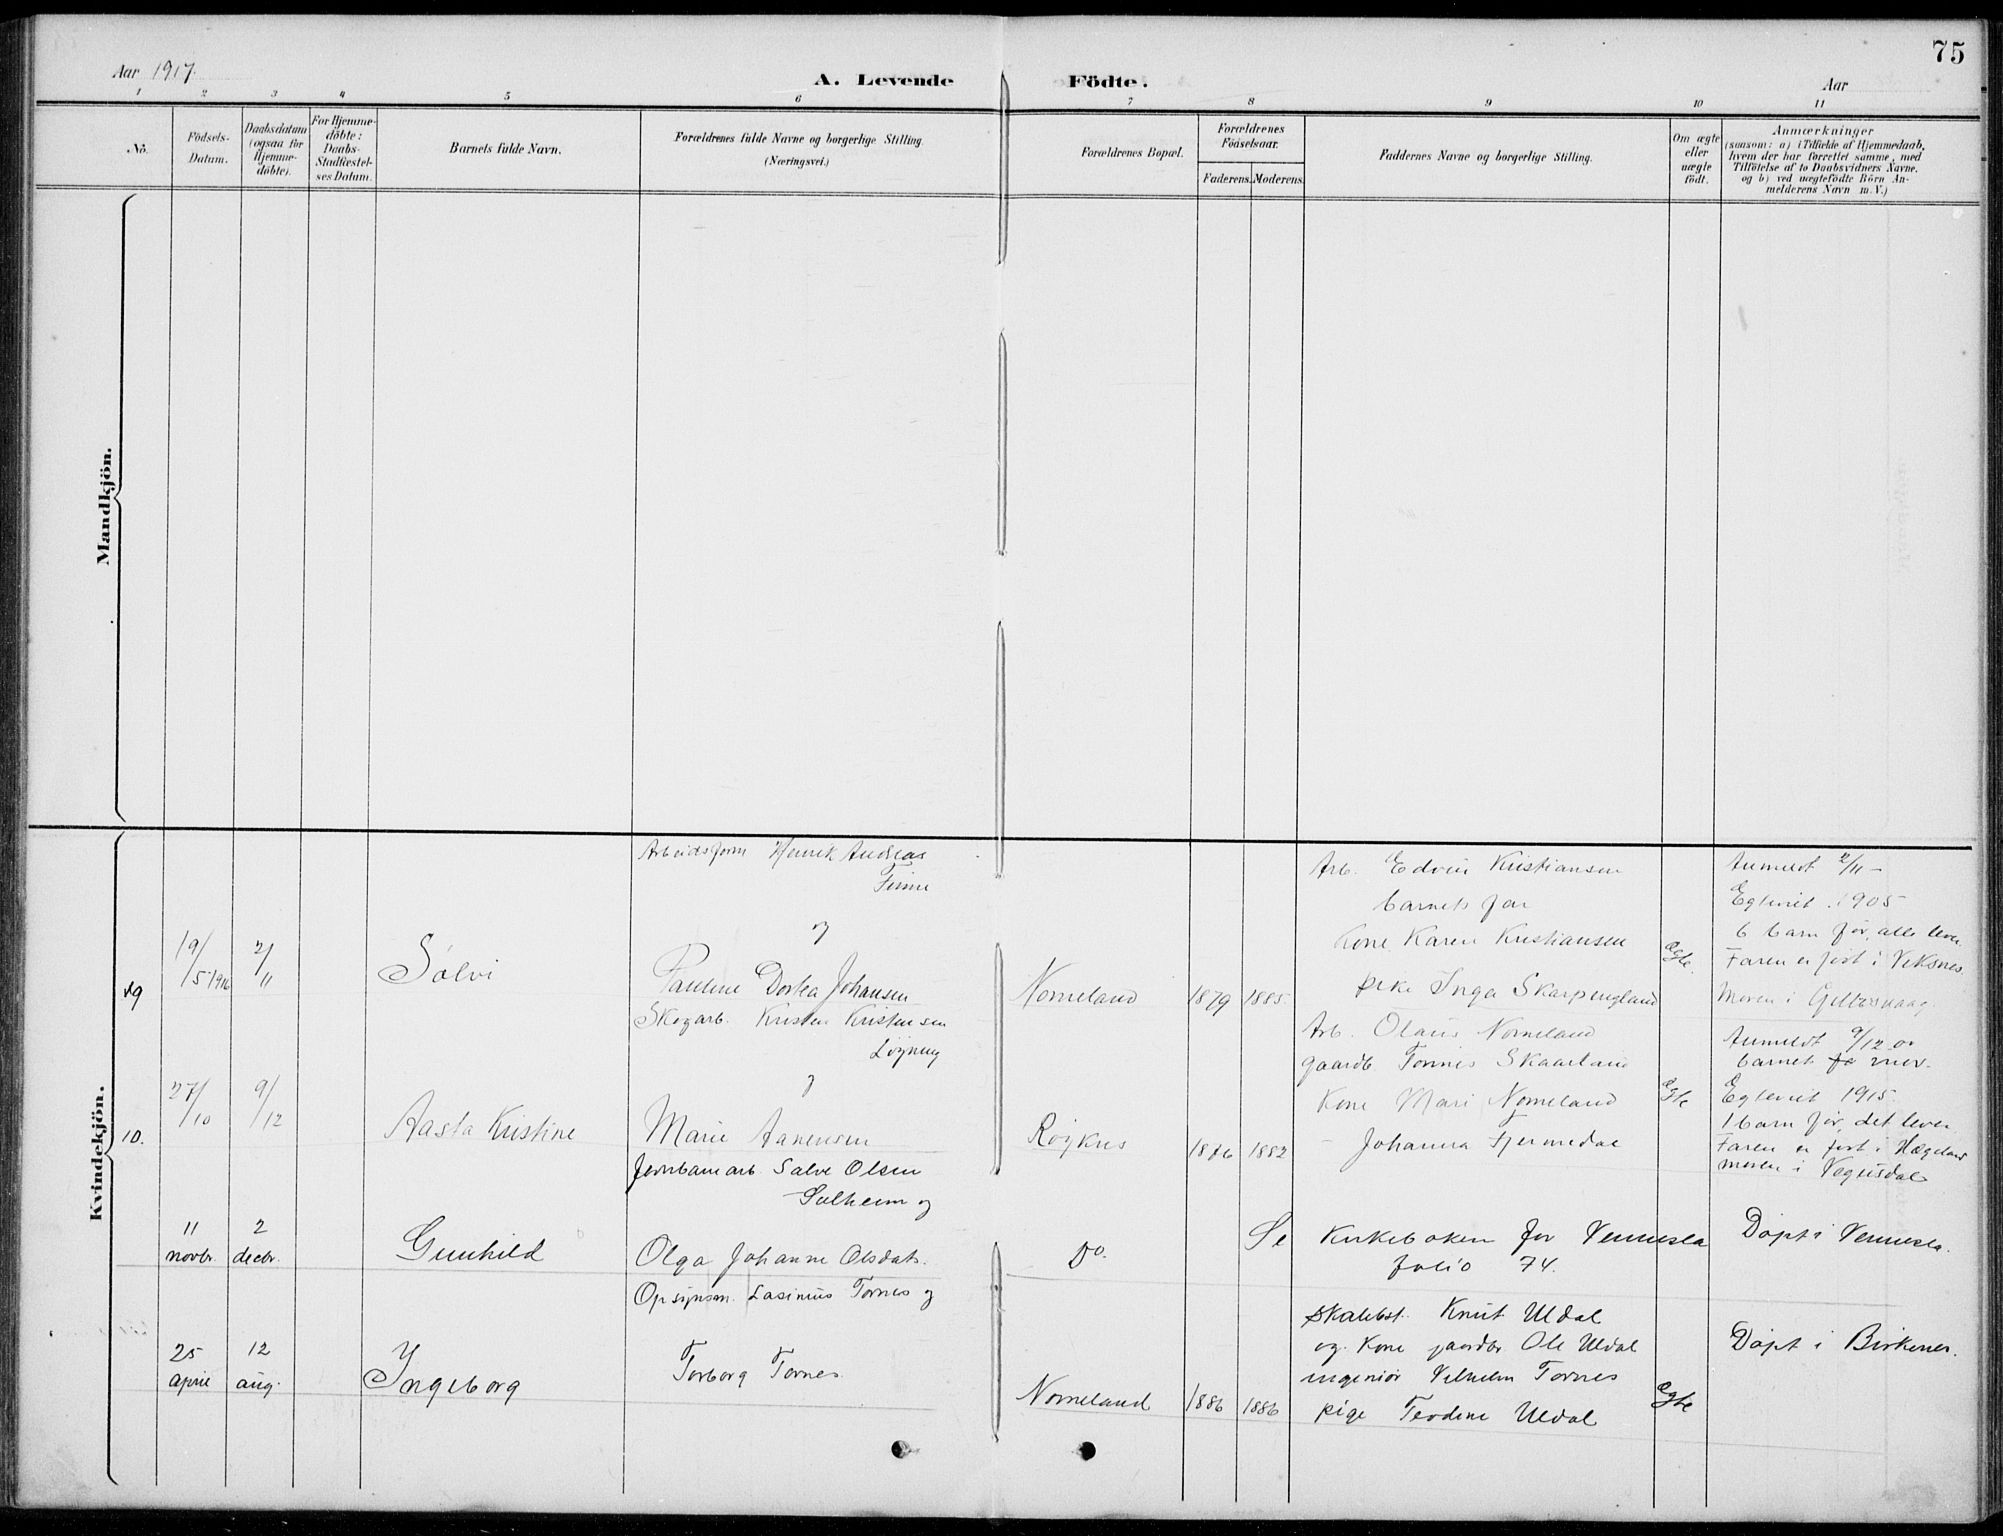 75
Aar 1917.
A. Levende Födte.
Aar
1 2 3 4 5 6 7 8 9 10 11
No.
Födsels-
Datum.
Daabsdatum
(ogsaa for
Hjemme-
döbte).
For Hjemme-
döbte:
Daabs-
Stadfæstel-
ses Datum.
Barnets fulde Navn.
Forældrenes fulde Navne og borgerlige Stilling.
(Næringsvei.)
Forældrenes Bopæl.
Forældrenes
Födselsaar.
Faderens. Moderens.
Faddernes Navne og borgerlige Stilling.
Om ægte
eller
uægte
födt.
Anmærkninger
(saasom: a) i Tilfælde af Hjemmedaab,
hvem der har forrettet samme, med
Tilföielse af to Daabsvidners Navne.
og b) ved uægtefödte Börn An-
melderens Navn m. V.)
Mandkjön.
Kvindekjön.
9
19/5 1916
2/11
Sølvi
Arbeidsform Henrik Andreas
Finne
og
Pauline Dortea Johansen
Nomeland
1879 1885
Arb. Edvin Kristiansen
barnets far
Kone Karen Kristiansen
pike Inga Skarpengland
Ægte.
Anmeldt 2/11 -
Egteviet 1905
6 barn før, alle lever.
Faren er født i Veksnes
Moren i
10.
27/10
9/12
Aasta Kristine
Skogarb. Kristen Kristensen
Løyning
og
Marie Aanensen
Røyknes
1876 1882
Arb. Olaus Nomeland
gaardb. Tønnes Skaarland
Kone Mari Nomeland
- Johanna Fjermedal
Ægte
Anmeldt 9/12 av
barnets mor.
Egteviet 1915.
1 barn før, det lever.
Faren er født i Hægeland
moren i Vegusdal
11
novbr.
2
decbr.
Gunhild
Jernbanearb. Salve Olsen
Solheim og
Olga Johanne Olsdatr.
Do.
Se Kirkeboken for Vennesla
folio 74.
Døpt i Vennesla.
25
april
12
aug.
Ingeborg
Opsynsm. Lasinius Tornes og
Torborg Tornes
Nomeland
1886 1886
Knut Uldal
og Kone gaardbr Ole Uldal
ingeniør Vilhelm Tornes
pige Teodine Uldal
Ægte
Døpt i Birkenes.